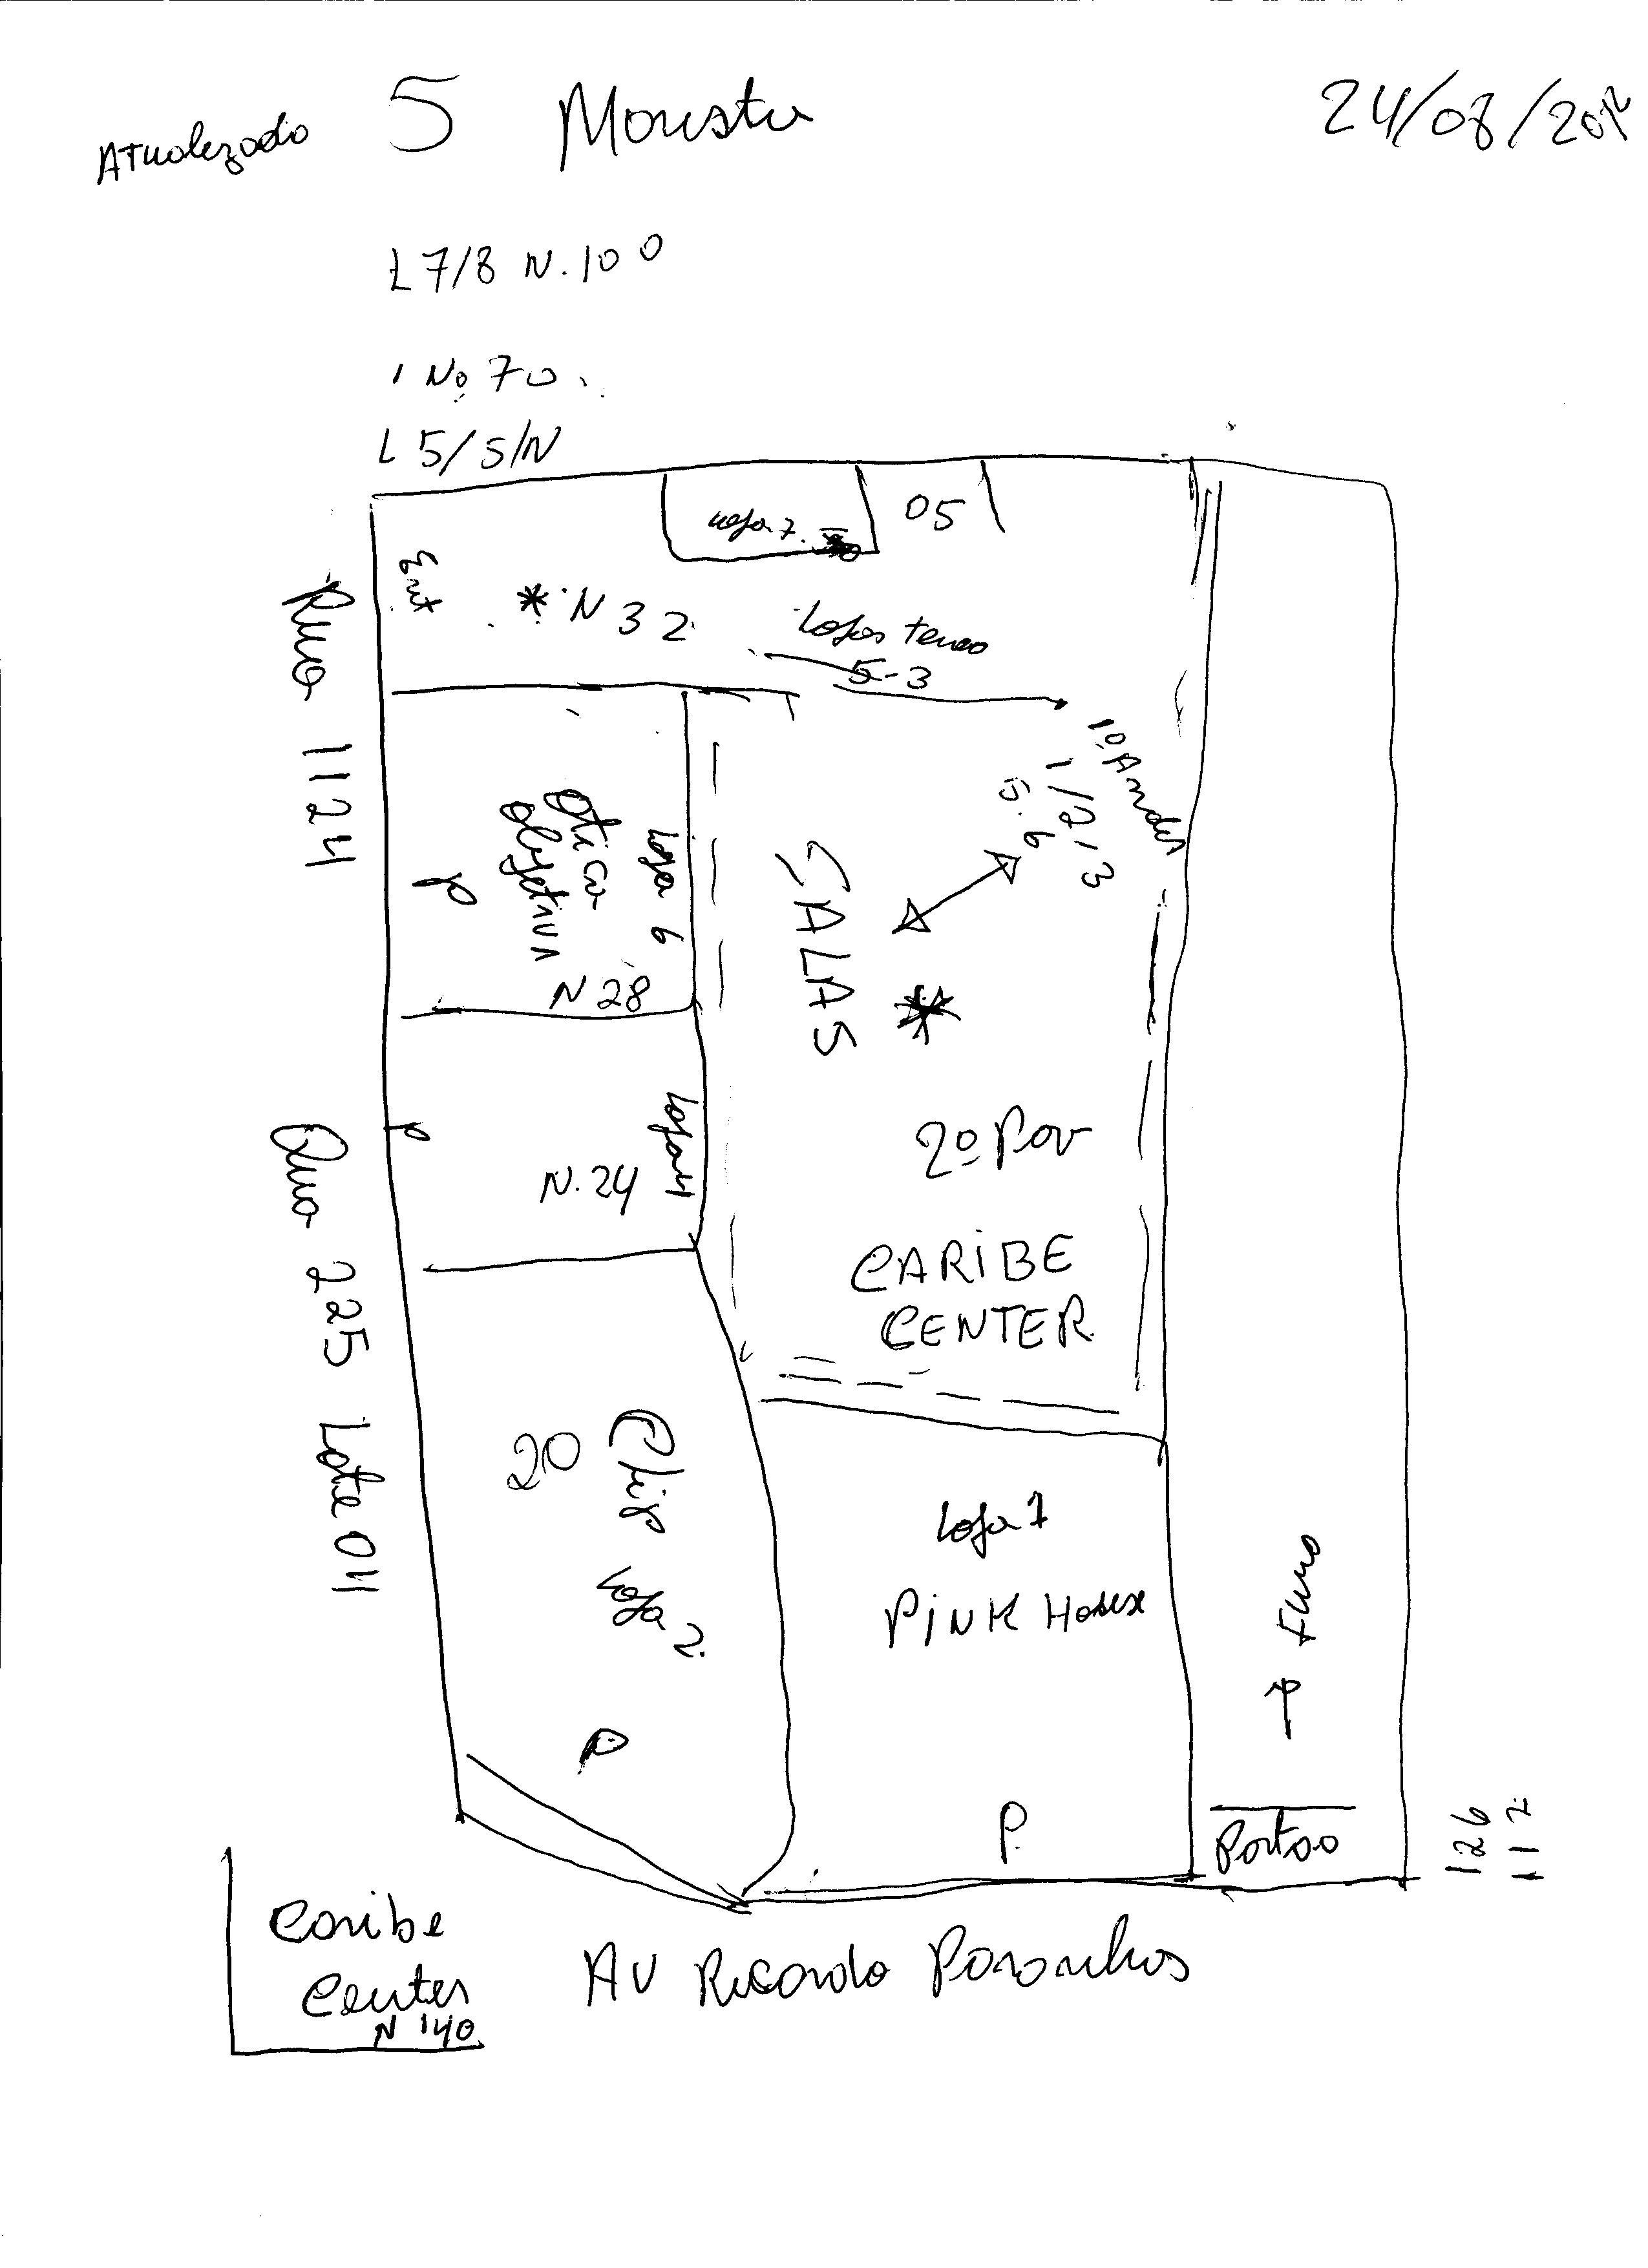 Atualizado 5 24/08/2012
L 7/8 N. 100
1 Nº 70.
L 5/S/N
Loja 7. 05
Ent
* N 32
Lojas terreo
5-3
1º Andar
1/2/3
5.6
Rua 1124
Otica
Objetiva
Loja 6
P
N 28
SALAS
*
Loja 4
P
N. 24
2º Pav
CARIBE
CENTER
Qua 225 Lote 04
20
Clip
Loja 2
P
Loja 1
PINK House
P.
Portao
126
112
Caribe
Center
N 140
AV Ricardo Paranhos